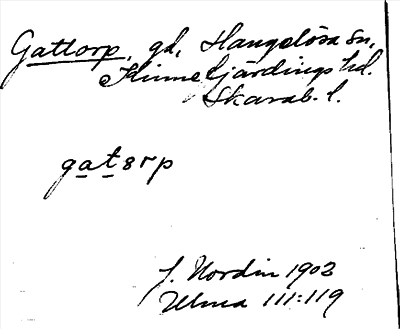 Gattorp, gd, Hangelösa sn,
Kinnefjärdings hd.
Skarab. l.
gatsrp
J. Nordin 1902
Ulma 111:119